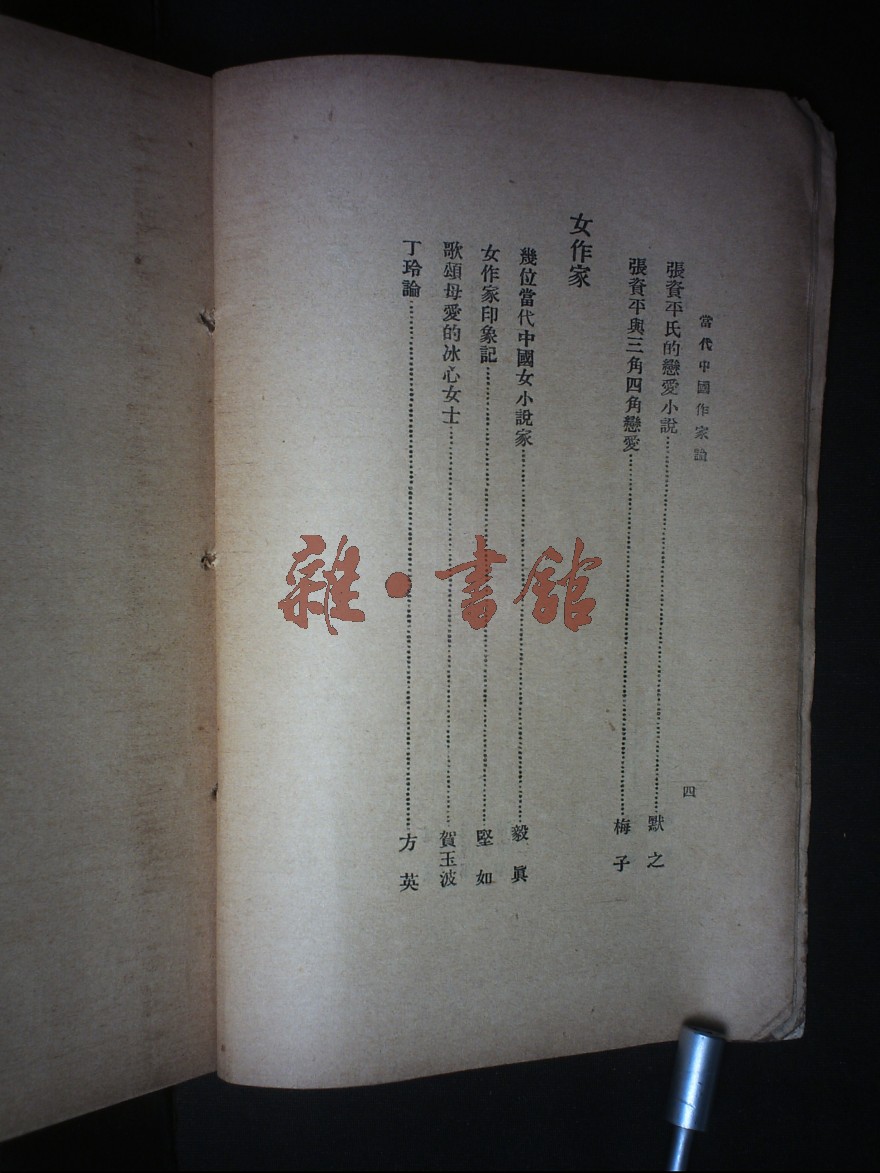 當代中國作家論
四
張資平氏的戀愛小說……默之
張資平與三角四角戀愛……梅子
女作家
幾位當代中國女小說家……毅眞
女作家印象記……堅如
歌頌母愛的冰心女士……賀玉波
丁玲論……方英
雜·書館